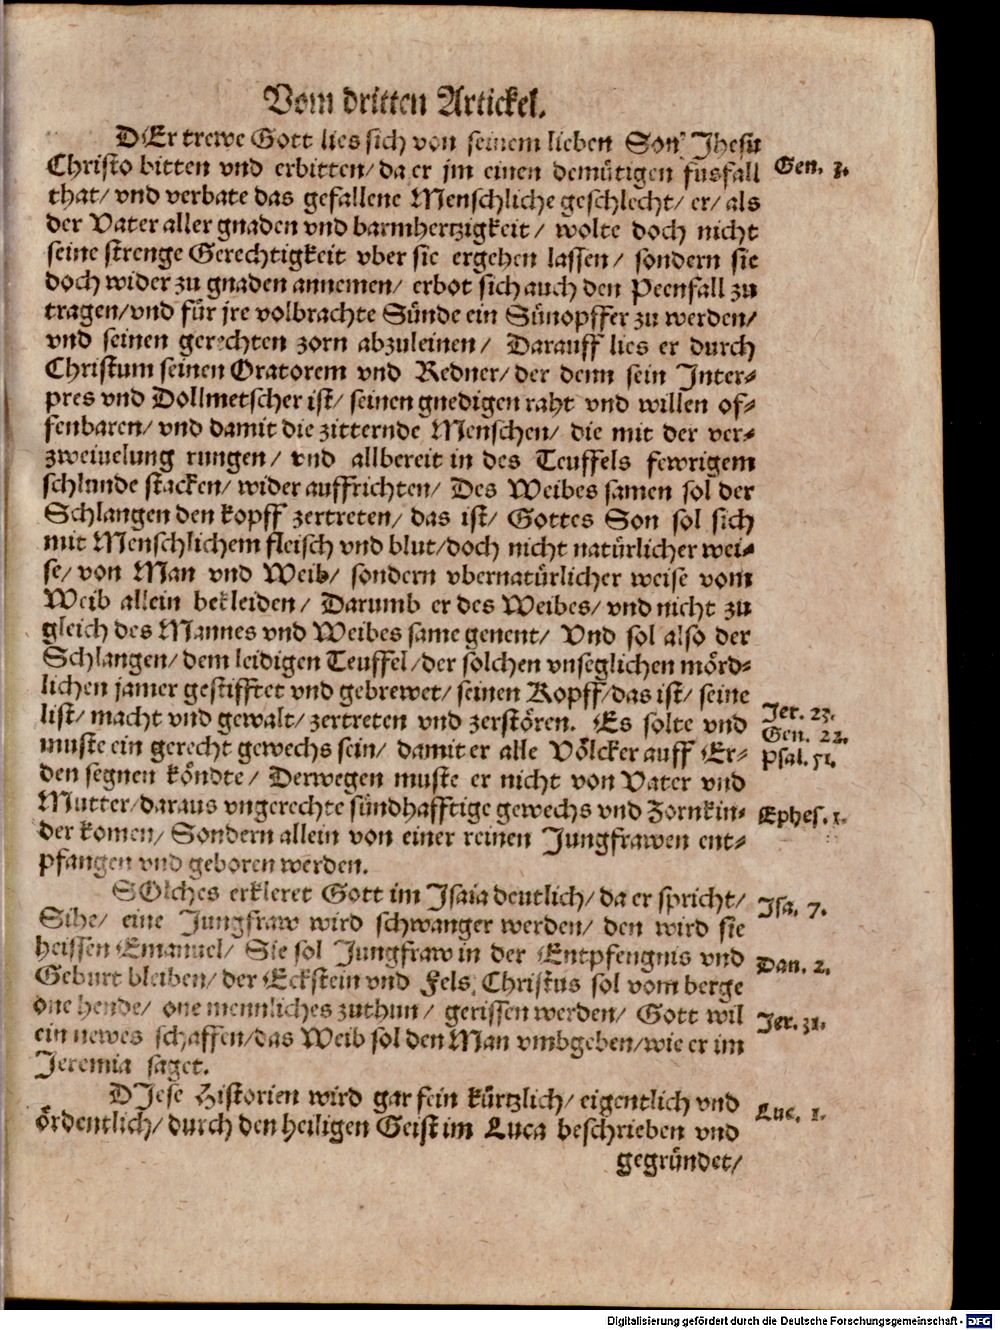 Vom dritten Artickel.
DEr trewe Gott lies sich von seinem lieben Son Jhesu
Christo bitten vnd erbitten/ da er jm einen demütigen fusfall
Gen. 3.
that/ vnd verbate das gefallene Menschliche geschlecht/ er/ als
der Vater aller gnaden vnd barmhertzigkeit/ wolte doch nicht
seine strenge Gerechtigkeit vber sie ergehen lassen/ sondern sie
doch wider zu gnaden annemen/ erbot sich auch den Peenfall zu
tragen/ vnd für jre volbrachte Sünde ein Sünopffer zu werden/
vnd seinen gerechten zorn abzuleinen/ Darauff lies er durch
Christum seinen Oratorem vnd Redner/ der denn sein Inter⸗
pres vnd Dollmetscher ist/ seinen gnedigen raht vnd willen of⸗
fenbaren/ vnd damit die zitternde Menschen/ die mit der ver⸗
zweiuelung rungen/ vnd allbereit in des Teuffels fewrigem
schlunde stacken/ wider auffrichten/ Des Weibes samen sol der
Schlangen den kopff zertreten/ das ist/ Gottes Son sol sich
mit Menschlichem fleisch vnd blut/ doch nicht natürlicher wei⸗
se/ von Man vnd Weib/ sondern vbernatürlicher weise vom
Weib allein bekleiden/ Darumb er des Weibes/ vnd nicht zu
gleich des Mannes vnd Weibes same genent/ Vnd sol also der
Schlangen/ dem leidigen Teuffel/ der solchen vnseglichen mörd⸗
lichen jamer gestifftet vnd gebrewet/ seinen Kopff/ das ist/ seine
list/ macht vnd gewalt/ zertreten vnd zerstören. Es solte vnd
Jer. 23.
Gen. 22.
muste ein gerecht gewechs sein/ damit er alle Völcker auff Er⸗
Psal. 51.
den segnen köndte/ Derwegen muste er nicht von Vater vnd
Mutter/ daraus vngerechte sündhafftige gewechs vnd Zornkin⸗
Ephes. 1.
der komen/ Sondern allein von einer reinen Jungfrawen ent⸗
pfangen vnd geboren werden.
SOlches erkleret Gott im Isaia deutlich/ da er spricht/
Isa. 7.
Sihe/ eine Jungfraw wird schwanger werden/ den wird sie
heissen Emanuel/ Sie sol Jungfraw in der Entpfengnis vnd
Dan. 2.
Geburt bleiben/ der Eckstein vnd Fels, Christus sol vom berge
one hende/ one mennliches zuthun/ gerissen werden/ Gott wil
Jer. 31.
ein newes schaffen/ das Weib sol den Man vmbgeben/ wie er im
Jeremia saget.
DIese Historien wird gar fein kürtzlich/ eigentlich vnd
Luc. 1.
ördentlich/ durch den heiligen Geist im Luca beschrieben vnd
gegründet/
Digitalisierung gefördert durch die Deutsche Forschungsgemeinschaft - DFG